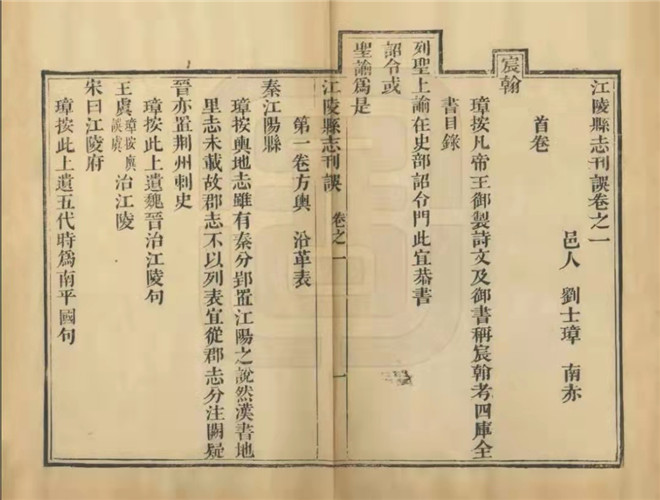 江陵縣志刊誤卷之一
邑人 劉士璋 南赤
首卷
宸翰
璋按凡帝王御製詩文及御書稱宸翰考四庫全
書目錄
列聖上諭在史部詔令門此宜恭書
詔令或
聖諭爲是
江陵縣志刊誤 卷之一 一
第一卷方輿 沿革表
秦江陽縣
璋按輿地志雖有秦分郢置江陽之說然漢書地
里志未載故郡志不以列表宜從郡志分注闕疑
晉亦置荆州刺史
璋按此上遺魏晉治江陵句
王㢊璋按輿誤虞治江陵
宋曰江陵府
璋按此上遺五代時爲南平國句